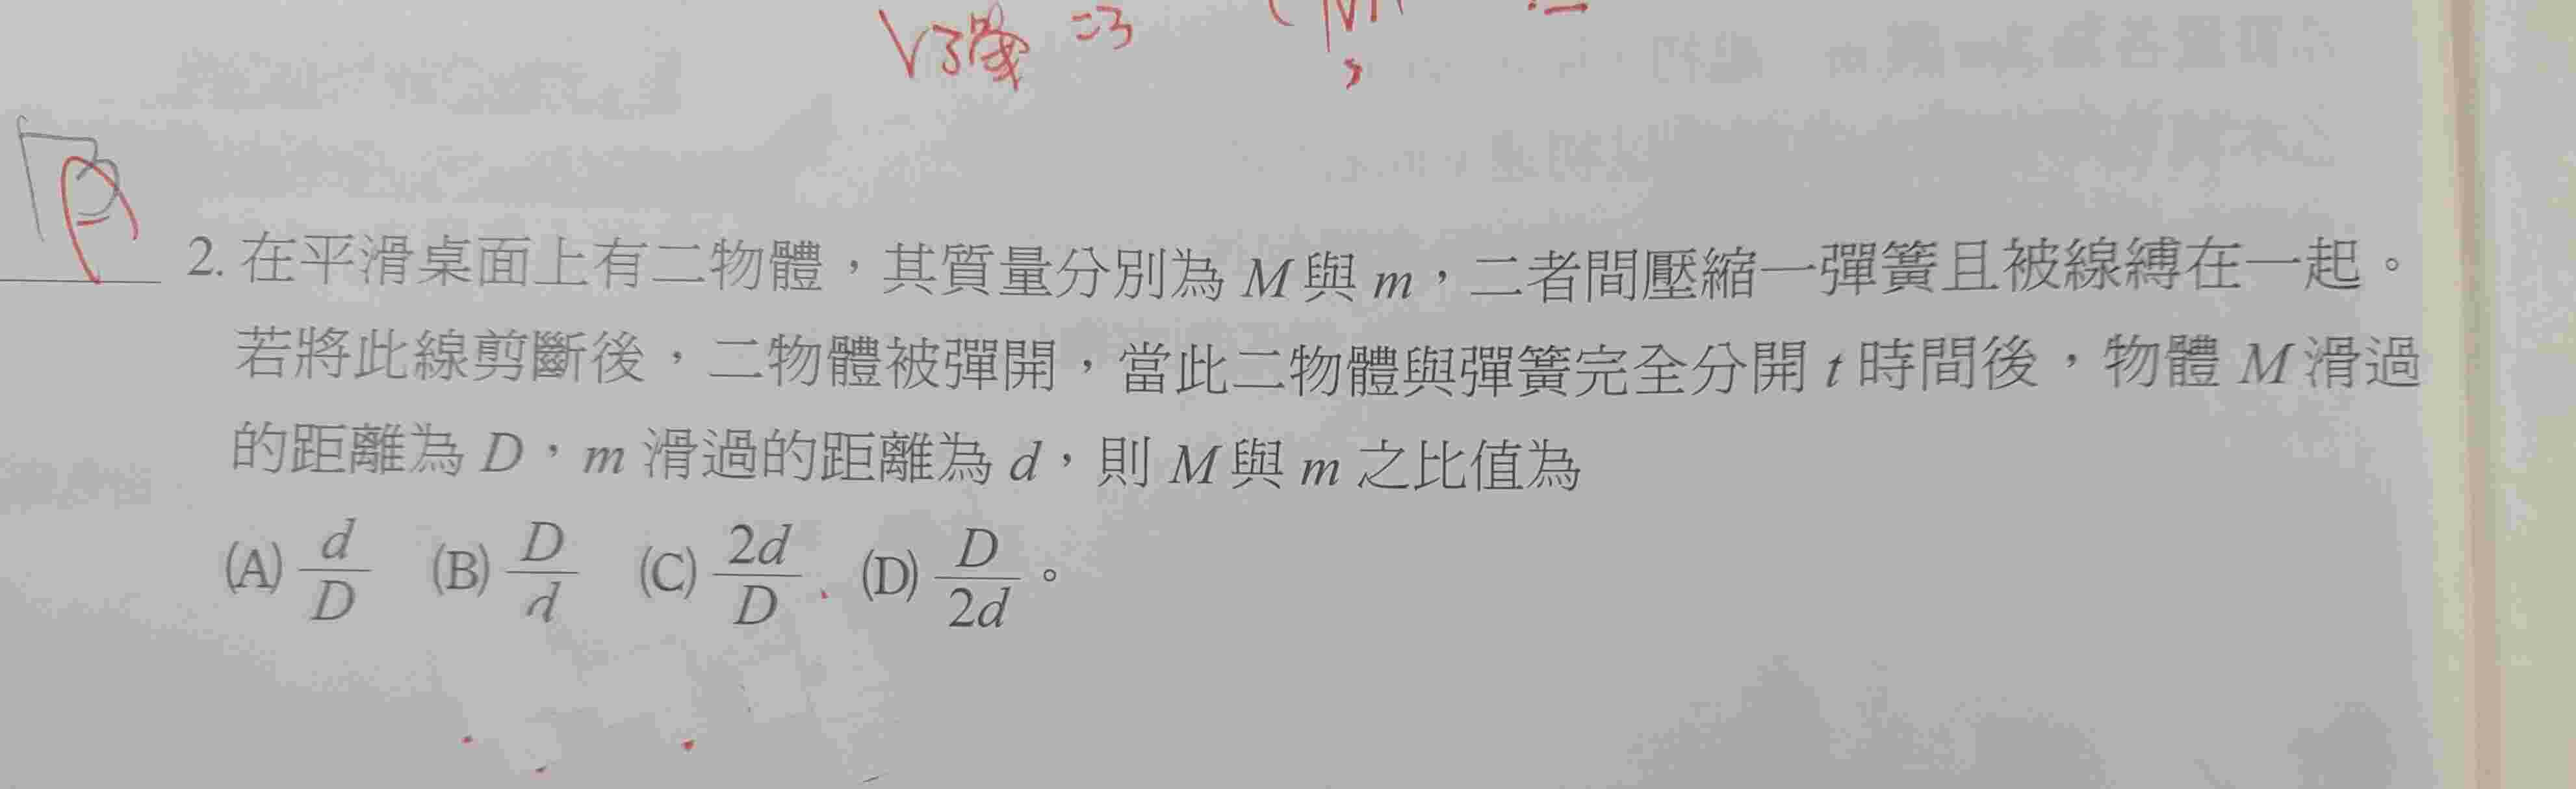 2. 在平滑桌面上有二物體，其質量分別為 M 與 m，二者間壓縮一彈簧且被線縛在一起。
若將此線剪斷後，二物體被彈開，當此二物體與彈簧完全分開 t 時間後，物體 M 滑過
的距離為 D，m 滑過的距離為 d，則 M 與 m 之比值為
(A) d/D (B) D/d (C) 2d/D (D) D/2d。